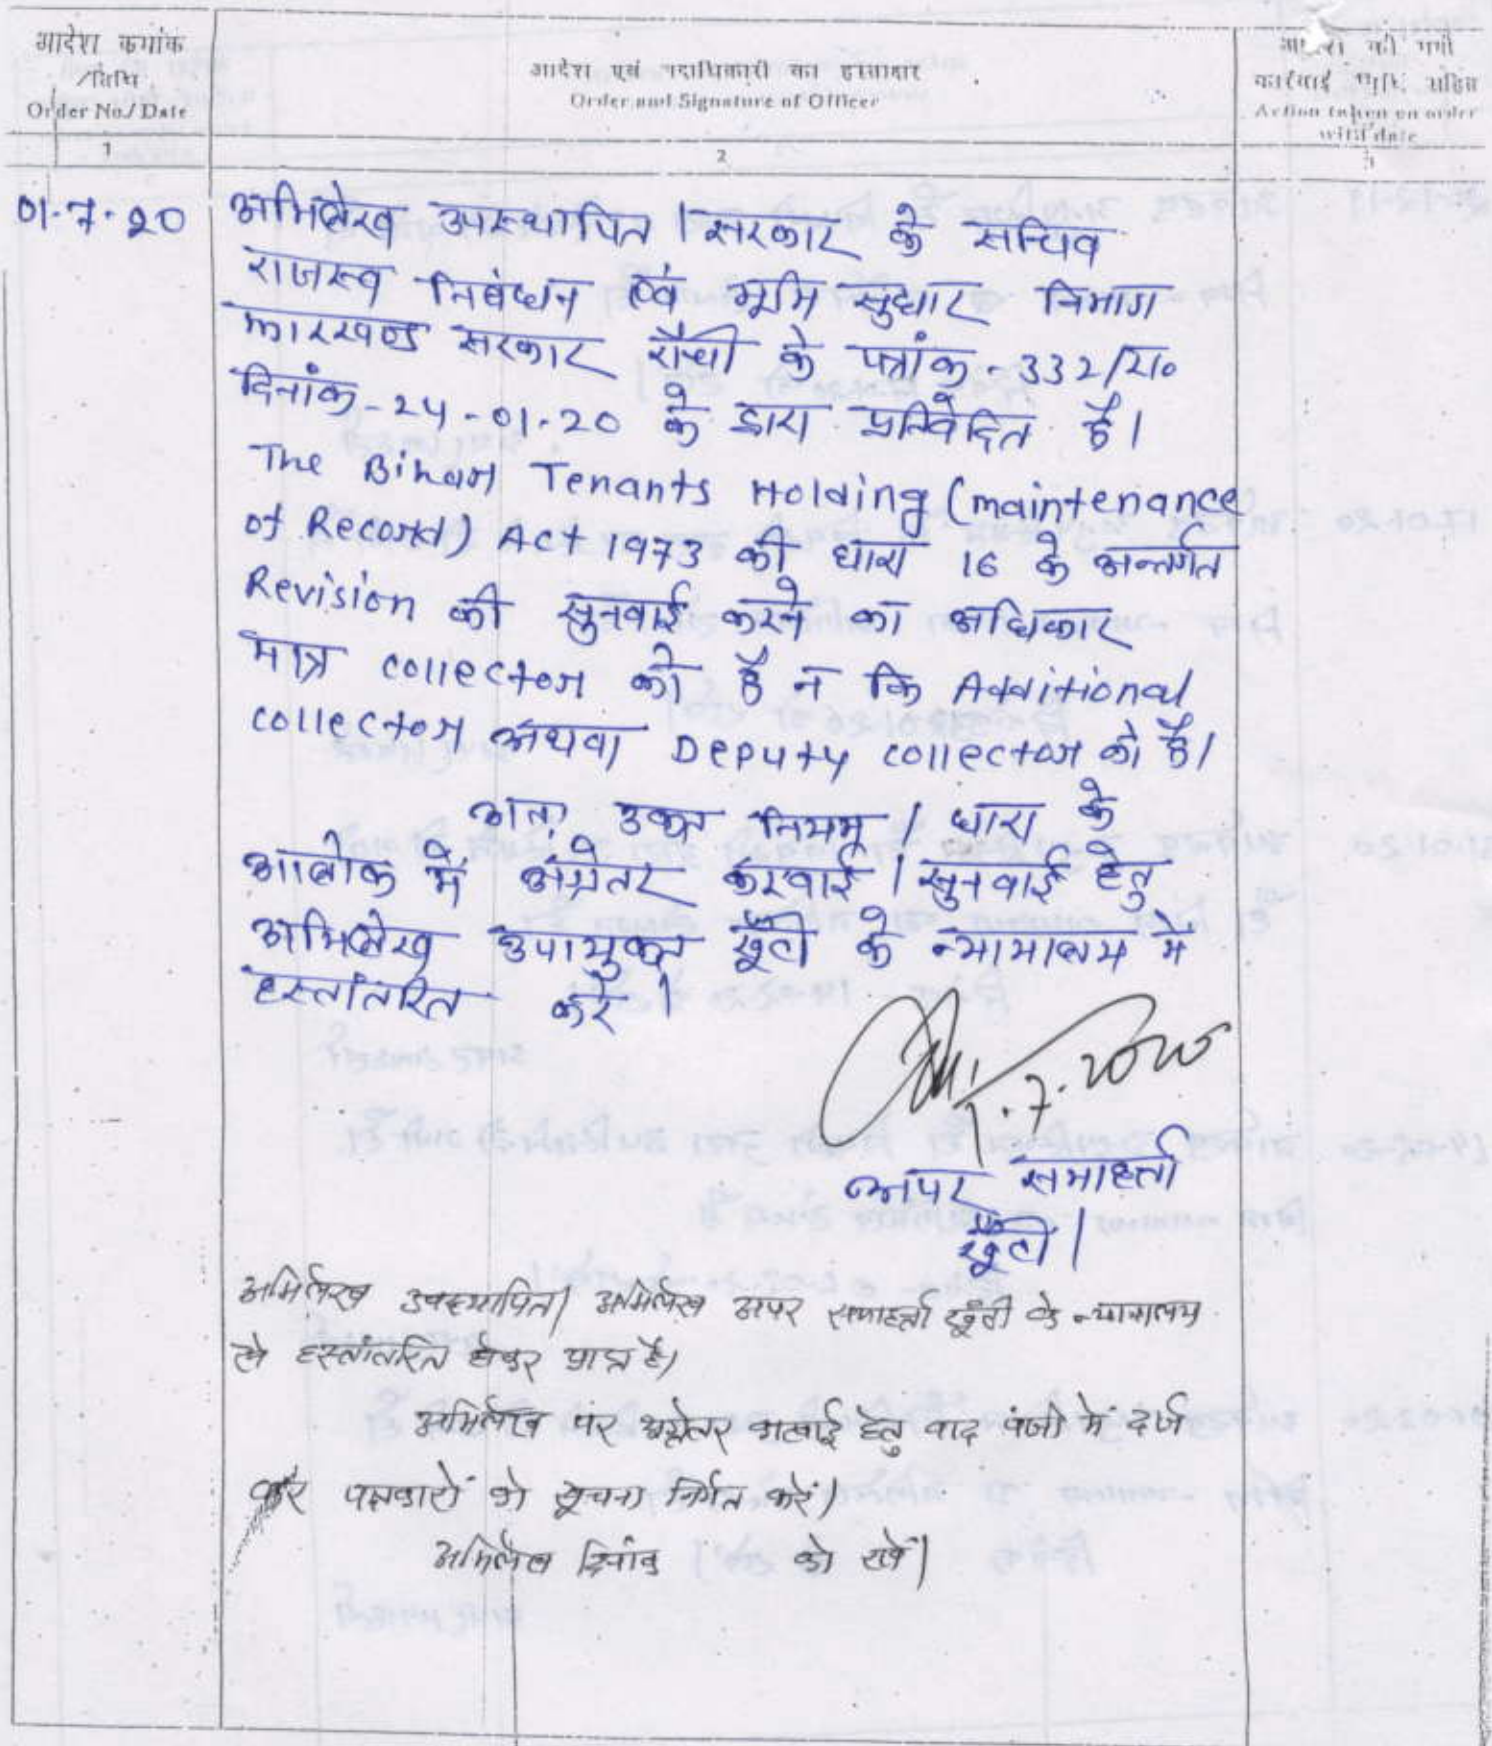 आदेश क्रमांक
/तिथि
Order No./Date
आदेश एवं पदाधिकारी का हस्ताक्षर
Order and Signature of Officer
आदेश की गयी
कार्रवाई सहित
Action taken on order
with date
1
2
3
01.7.20
अभिलेख उपस्थापित । सरकार के सचिव
राजस्व निबंधन एवं भूमि सुधार विभाग
झारखण्ड सरकार राँची के पत्रांक - 332/रा०
दिनांक - 24-01-20 के द्वारा प्रतिवेदित है।
The Bihar Tenants Holding (maintenance
of Record) Act 1973 की धारा 16 के अन्तर्गत
Revision की सुनवाई करने का अधिकार
मात्र collector को है न कि Additional
collector अथवा Deputy collector को है।
अतः उक्त नियम / धारा के
आलोक में अग्रेतर करवाई / सुनवाई हेतु
अभिलेख उपायुक्त खूँटी के न्यायालय में
हस्तांतरित करें ।
1.7.2020
अपर समाहर्ता
खूँटी ।
अभिलेख उपस्थापित। अभिलेख अपर समाहर्ता खूँटी के न्यायालय
से हस्तांतरित होकर प्राप्त है।
अभिलेख पर अग्रेतर कारवाई हेतु वाद पंजी में दर्ज
कर पक्षकारों को सूचना निर्गत करें।
अभिलेख दिनांक को रखें।